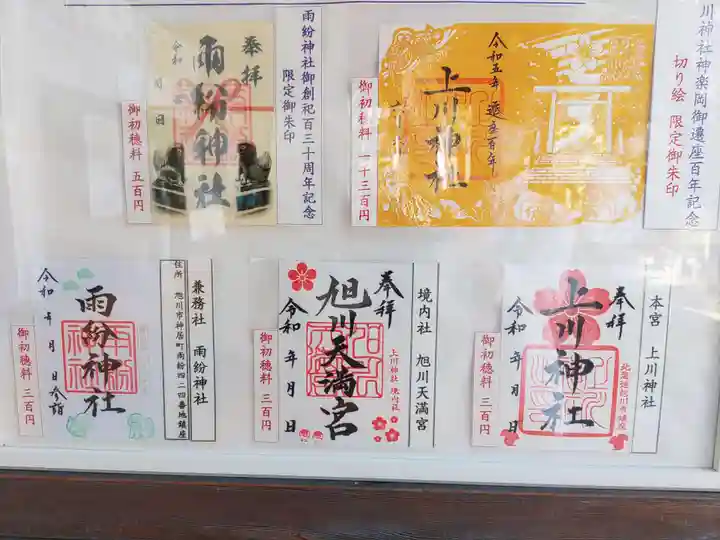 川神社神楽岡御遷座百年記念
切り絵 限定御朱印
令和五年 遷座百年
上川神社
御初穂料 一千三百円
雨紛神社御創祀百三十周年記念
限定御朱印
奉拝
雨紛神社
令和 月 日
御初穂料 五百円
本宮 上川神社
奉拝
上川神社
令和 年 月 日
北海道旭川市鎮座
御初穂料 三百円
境内社 旭川天満宮
奉拝
旭川天満宮
令和 年 月 日
上川神社 境内社
御初穂料 三百円
兼務社 雨紛神社
住所 旭川市神居町雨紛四二四番地鎮座
雨紛神社
令和 年 月 日参詣
御初穂料 三百円